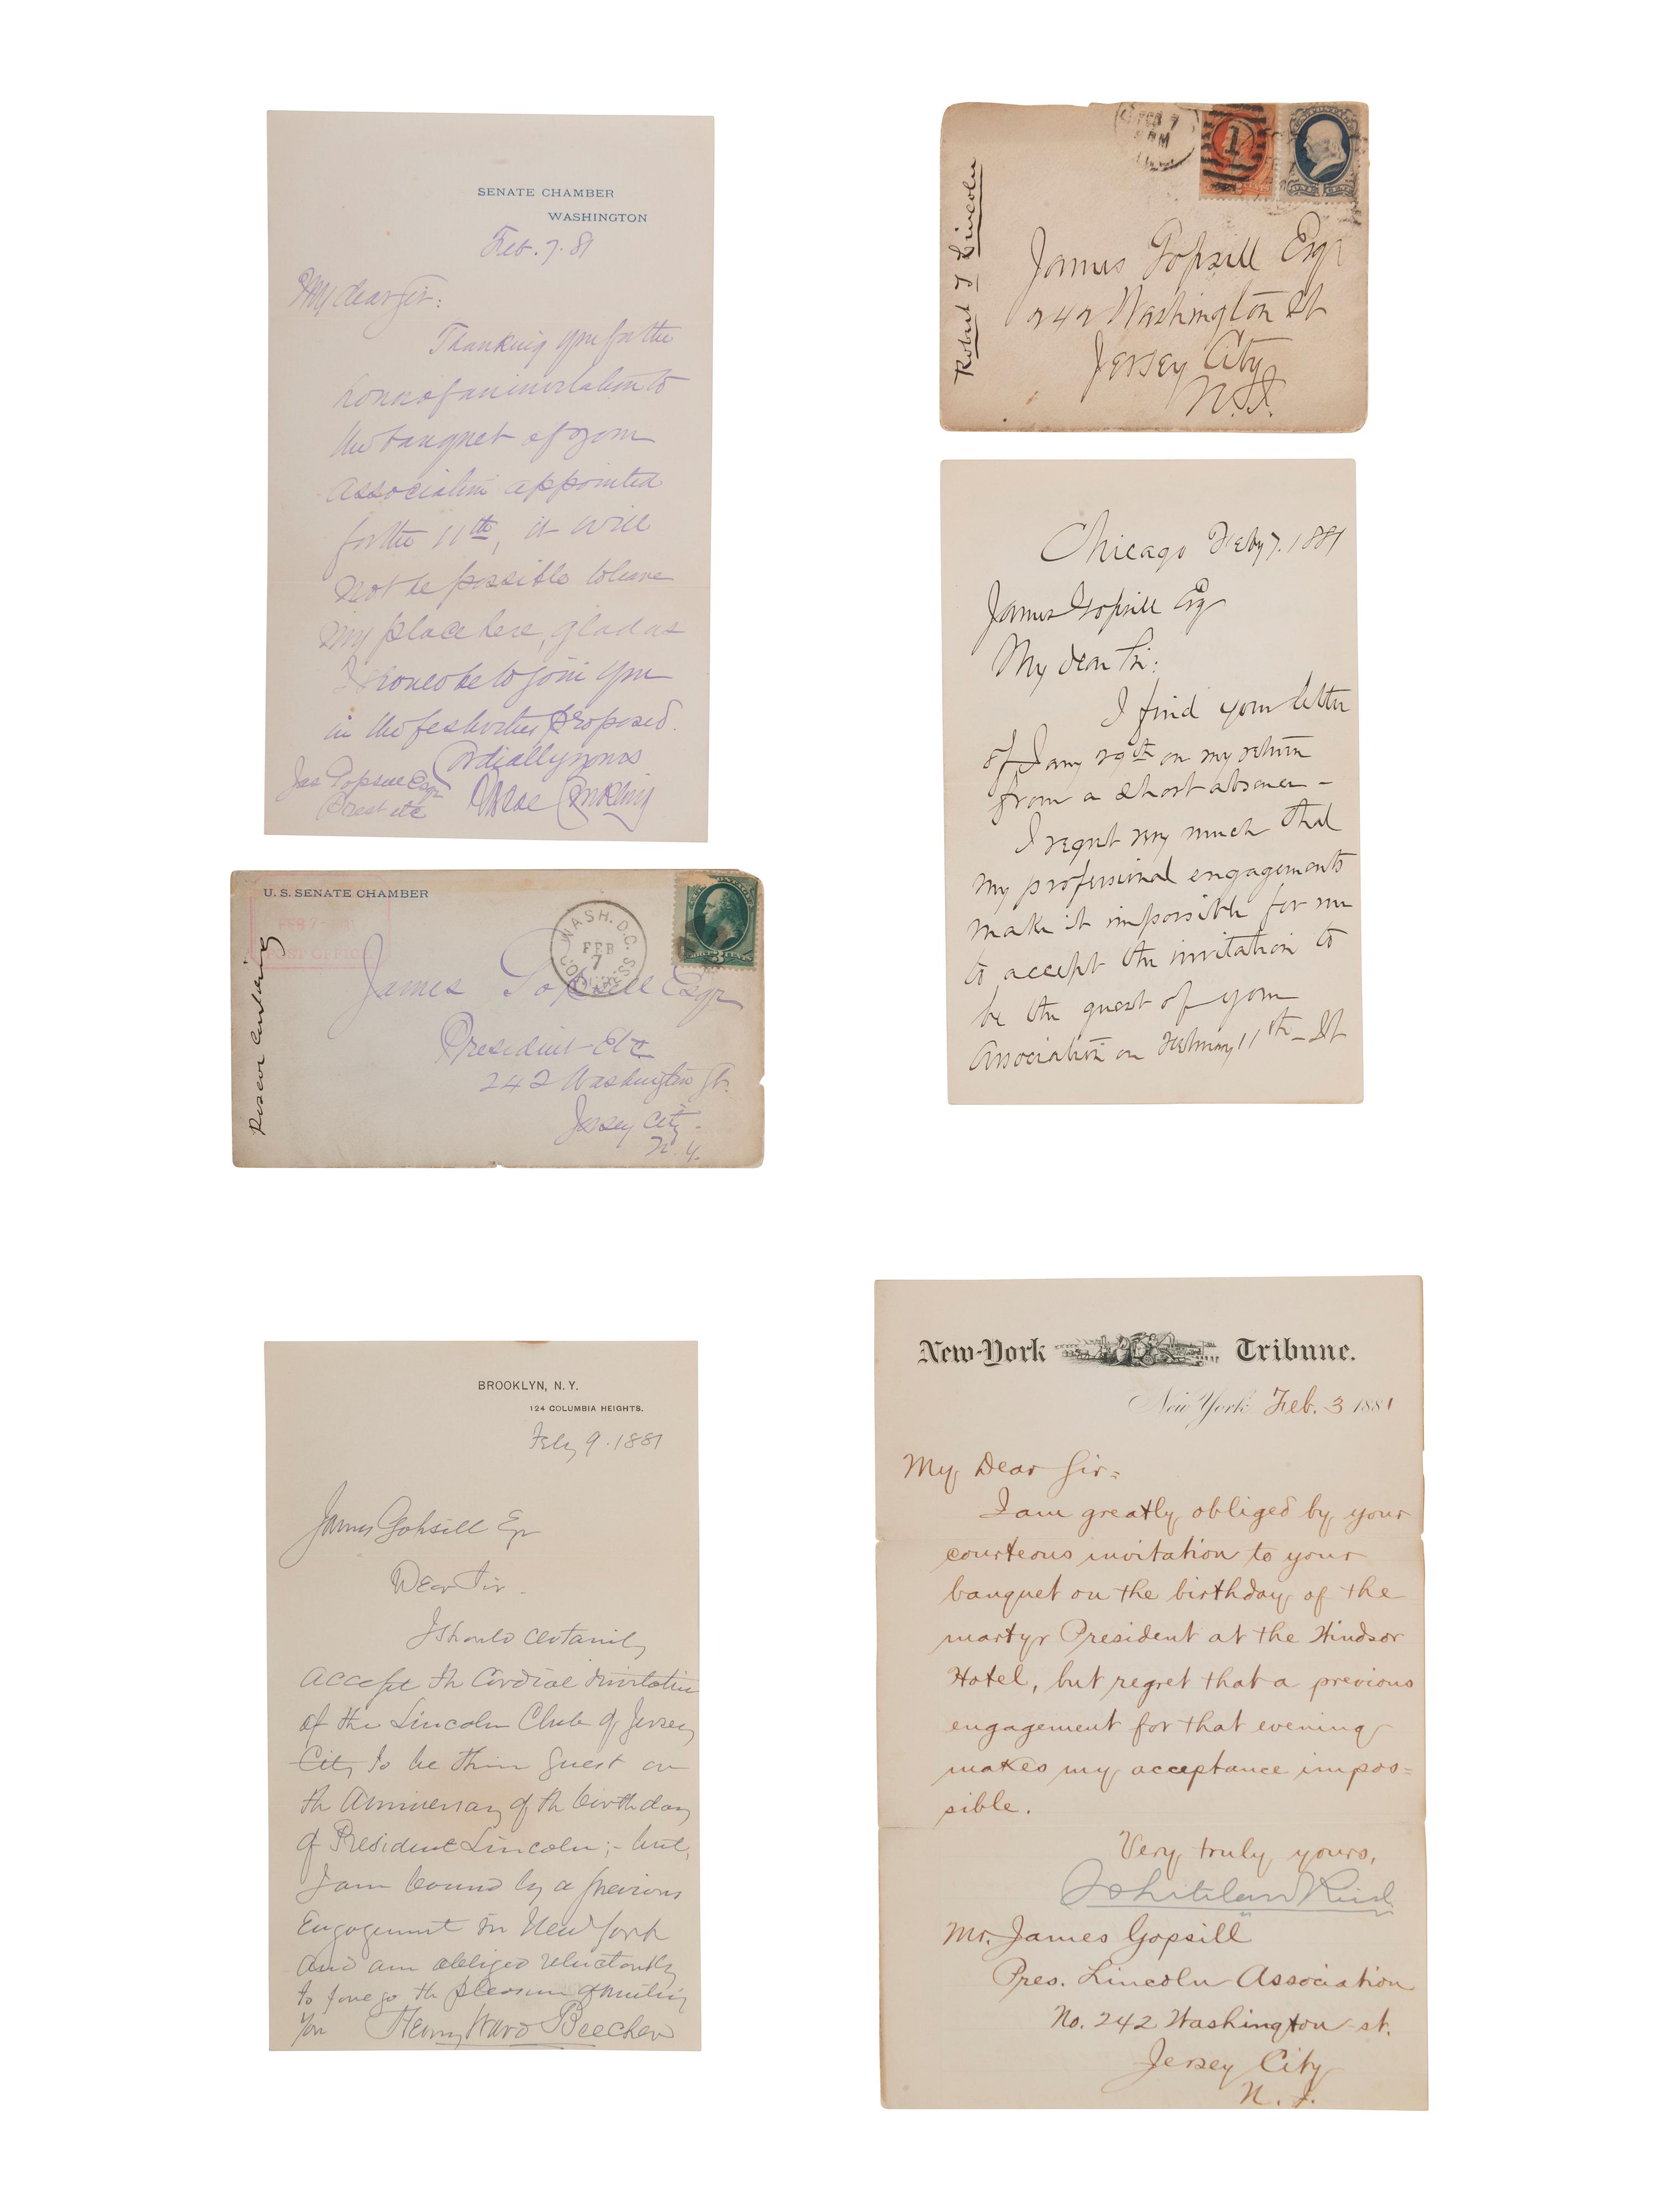 SENATE CHAMBER
WASHINGTON
Feb. 7. 81
My dear Sir:
Thanking you for the
honor of an invitation to
the banquet of your
Association appointed
for the 11th, it will
not be possible to leave
my place here, glad as
I should be to join you
in the festivities proposed.
Cordially yours
Roscoe Conkling
Jas Gopsill Esqr
Prest etc
U. S. SENATE CHAMBER
FEB 7
POST OFFICE
WASH. D.C.
FEB
7
CONGRESS
3
James Gopsill Esqr
President Etc
242 Washington St.
Jersey City
N. Y.
Roscoe Conkling
FEB 7
PM
1
Robert T Lincoln
James Gopsill Esqr
242 Washington St
Jersey City
N.J.
Chicago Feby 7. 1881
James Gopsill Esq
My dear Sir:
I find your letter
of Jany 29th on my return
from a short absence -
I regret very much that
my professional engagements
make it impossible for me
to accept the invitation to
be the guest of your
Association on February 11th - It
BROOKLYN, N. Y.
124 COLUMBIA HEIGHTS.
Feby 9. 1881
James Gopsill Esq
Dear Sir.
I should certainly
accept the cordial invitation
of the Lincoln Club of Jersey
City to be their guest on
the Anniversary of the birthday
of President Lincoln; - but,
I am bound by a previous
Engagement in New York
and am obliged reluctantly
to forego the pleasure of meeting
you Henry Ward Beecher
New-York Tribune.
New York Feb. 3 1881
My Dear Sir:
I am greatly obliged by your
courteous invitation to your
banquet on the birthday of the
martyr President at the Windsor
Hotel, but regret that a previous
engagement for that evening
makes my acceptance impos=
sible.
Very truly yours,
Whitelaw Reid
Mr. James Gopsill
Pres. Lincoln Association
No. 242 Washington st.
Jersey City
N. J.